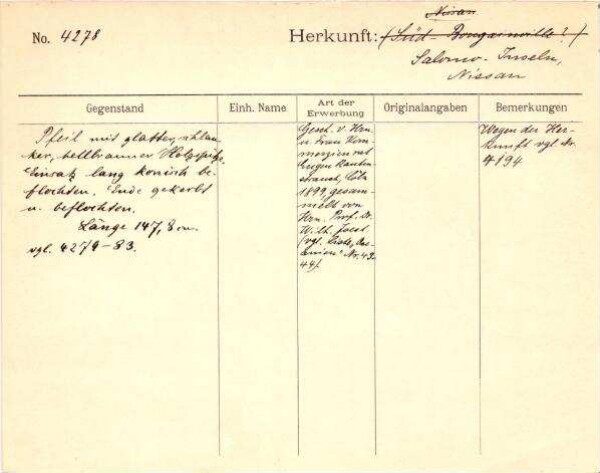 Nissan
No. 4278
Herkunft: (Süd-Bougainville?)
Salomo-Inseln,
Nissan
Gegenstand
Einh. Name
Art der
Erwerbung
Originalangaben
Bemerkungen
Pfeil mit glatter, schlan-
ker, hellbrauner Holzspitze.
Einsatz lang konisch be-
flochten. Ende gekerbt
u. beflochten.
Länge 147,8 cm.
vgl. 4279-83.
Gesch. v. Hrn.
u. Frau Kom-
merzienrat
Eugen Rauten-
strauch, Cöln
1899, gesam-
melt von
Hrn. Prof. Dr.
Wilh. Joest.
(vgl. Liste, "Oze-
anien" Nr. 43.
44).
Wegen der Her-
kunft vgl. Nr.
4194